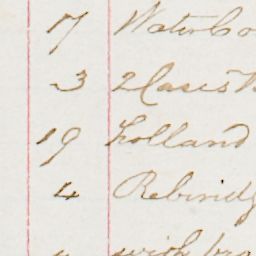 17 Waterbo
3 2 Cases
19 Folland
4 Rebindg
with bro